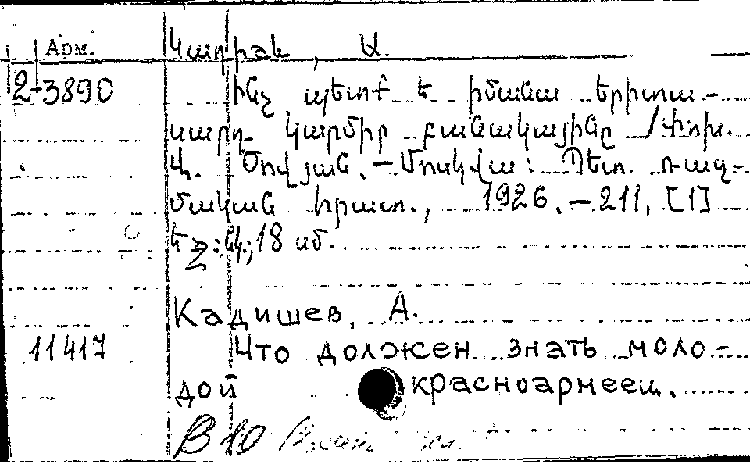 Арм.
2-3890
Ինչ պետք է իմանա երիտա-
սարդ կարմիր բանակայինը /Փոխ.
Մովյան. – Մոսկվա: Պետ. ռազ-
մական հրատ., 1926. – 211, [1]
եջ: նկ; 18 սմ.
Кадишев, А.
11417 Что должен знать моло-
дой красноармеец.
В 10